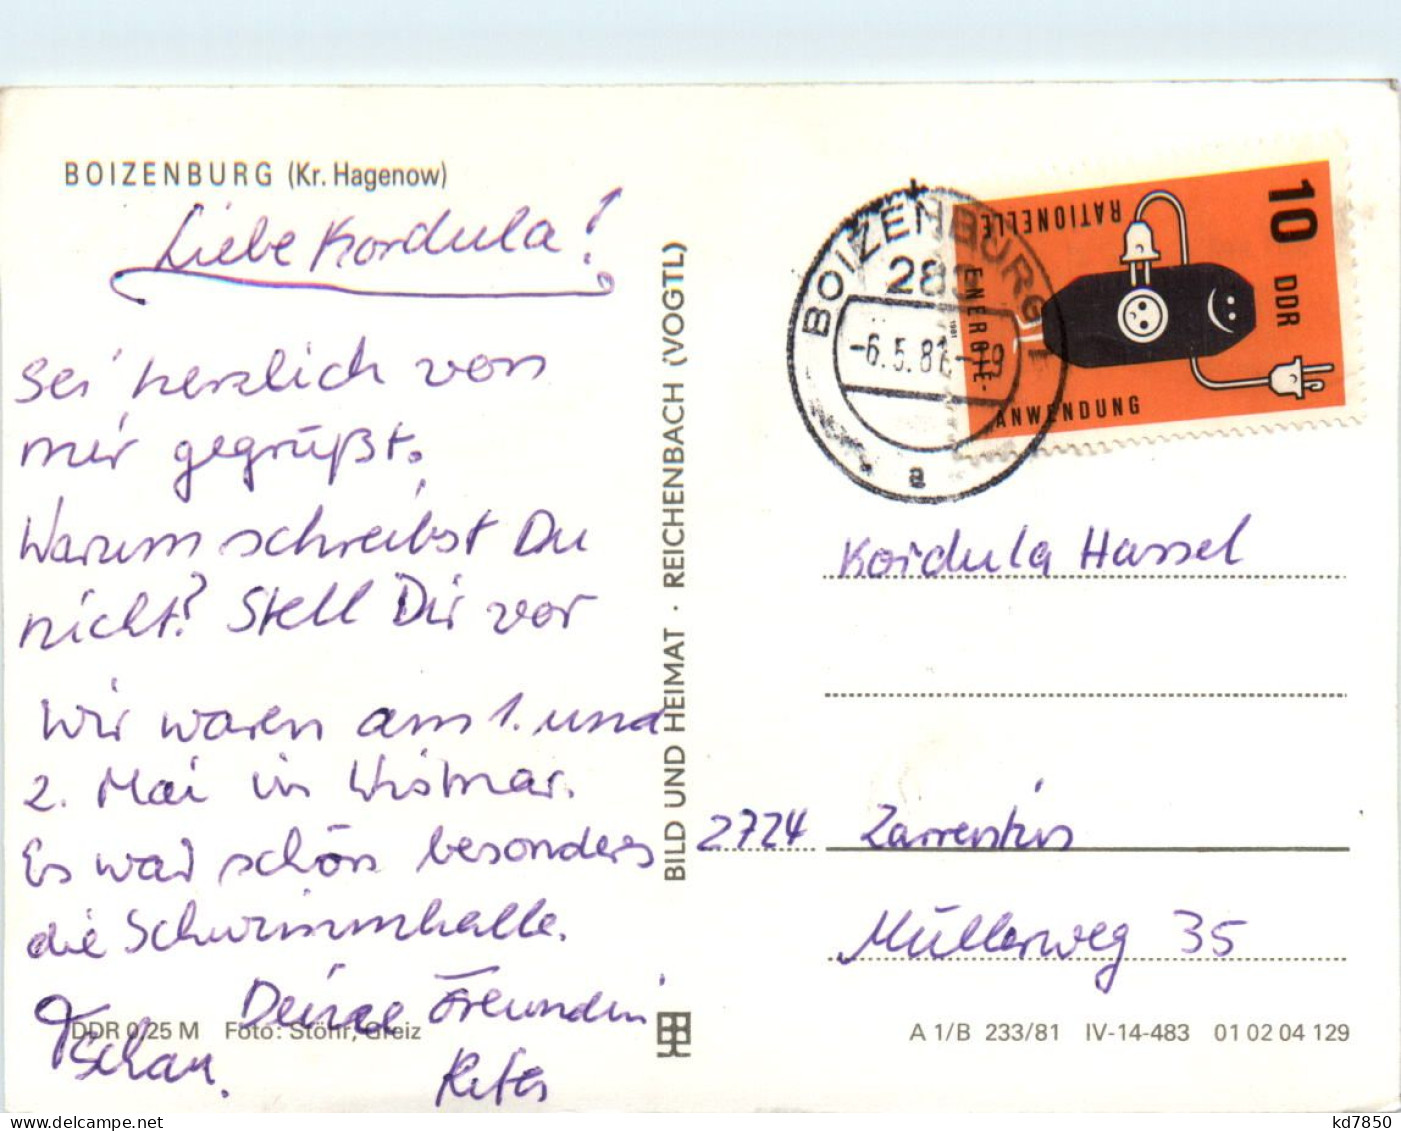 BOIZENBURG (Kr. Hagenow)
Liebe Kordula!
Sei herzlich von
mir gegrüßt.
Warum schreibst Du
nicht? Stell Dir vor
Wir waren am 1. und
2. Mai in Wismar.
Es war schön besonders
die Schwimmhalle.
Deine Freundin
Tschau.
DDR 0,25 M Foto: Stöhr, Greiz
BILD UND HEIMAT · REICHENBACH (VOGTL)
BOIZENBURG
283
-6.5.81-19
a
10 DDR
RATIONELLE
ENERGIE-
ANWENDUNG
1981
Kordula Hassel
2724 Zarrentin
Müllerweg 35
A 1/B 233/81 IV-14-483 01 02 04 129
kd7850